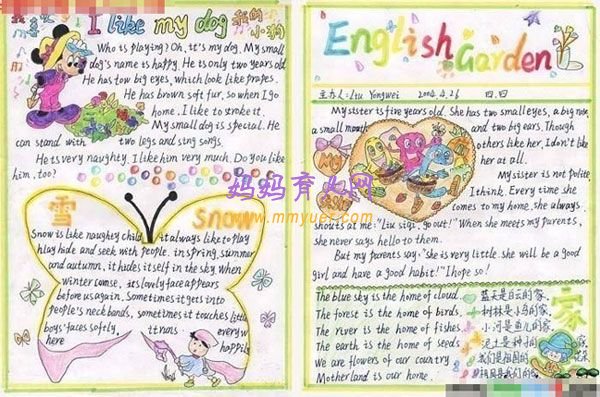 I like my dog 我的小狗
Who is playing? Oh, it's my dog. My small
dog's name is happy. He is only two years old
He has tow big eyes, which look like prapes.
He has brown soft fur, so when I go
home. I like to stroke it.
My small dog is special. He
can stand with two legs and sing songs.
He is very naughty. I like him very much. Do you like
him, too?
雪 Snow
Snow is like naughty child, it always like to play
hlay hide and seek with people. in spring, summer
and autumn, it hides itself in the sky. When
winter comse, it slovely face appears
before us again. Sometimes it gets into
people's neck bands, sometimes it touches little
boys' faces softly, it trans everyw
here happily
English Garden
主办人: Liu Yongwei 2004.4.26 四.四
My sister is five years old. She has two small eyes, a big nose,
a small mouth and two big ears. Though
others like her, I don't like
her at all.
My sister is not polite,
I think. Every time she
comes to my home, she always
shouts at me: "Liu siqi, go out!" When she meets my parents,
she never says hello to them.
But my parents say: "she is very little. she will be a good
girl and have a good habit!" I hope so!
The blue sky is the home of cloud. 蓝天是白云的家.
The forest is the home of birds. 树林是小鸟的家.
The river is the home of fishes. 小河是鱼儿的家.
The earth is the home of seeds. 泥土是种子的家.
We are flowers of our country. 我们是祖国的花朵
Motherland is our home. 祖国是我们的家.
家
妈妈育儿网
www.mmyuer.com